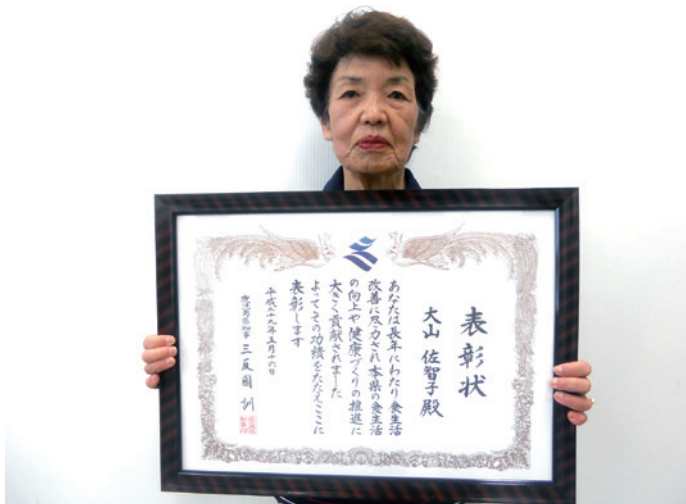 表彰状
大山 佐智子 殿
あなたは長年にわたり食生活
改善に尽力され本県の食生活
の向上や健康づくりの推進に
大きく貢献されました
よってその功績をたたえここに
表彰します
平成二十九年五月十六日
鹿児島県知事 三反園 訓